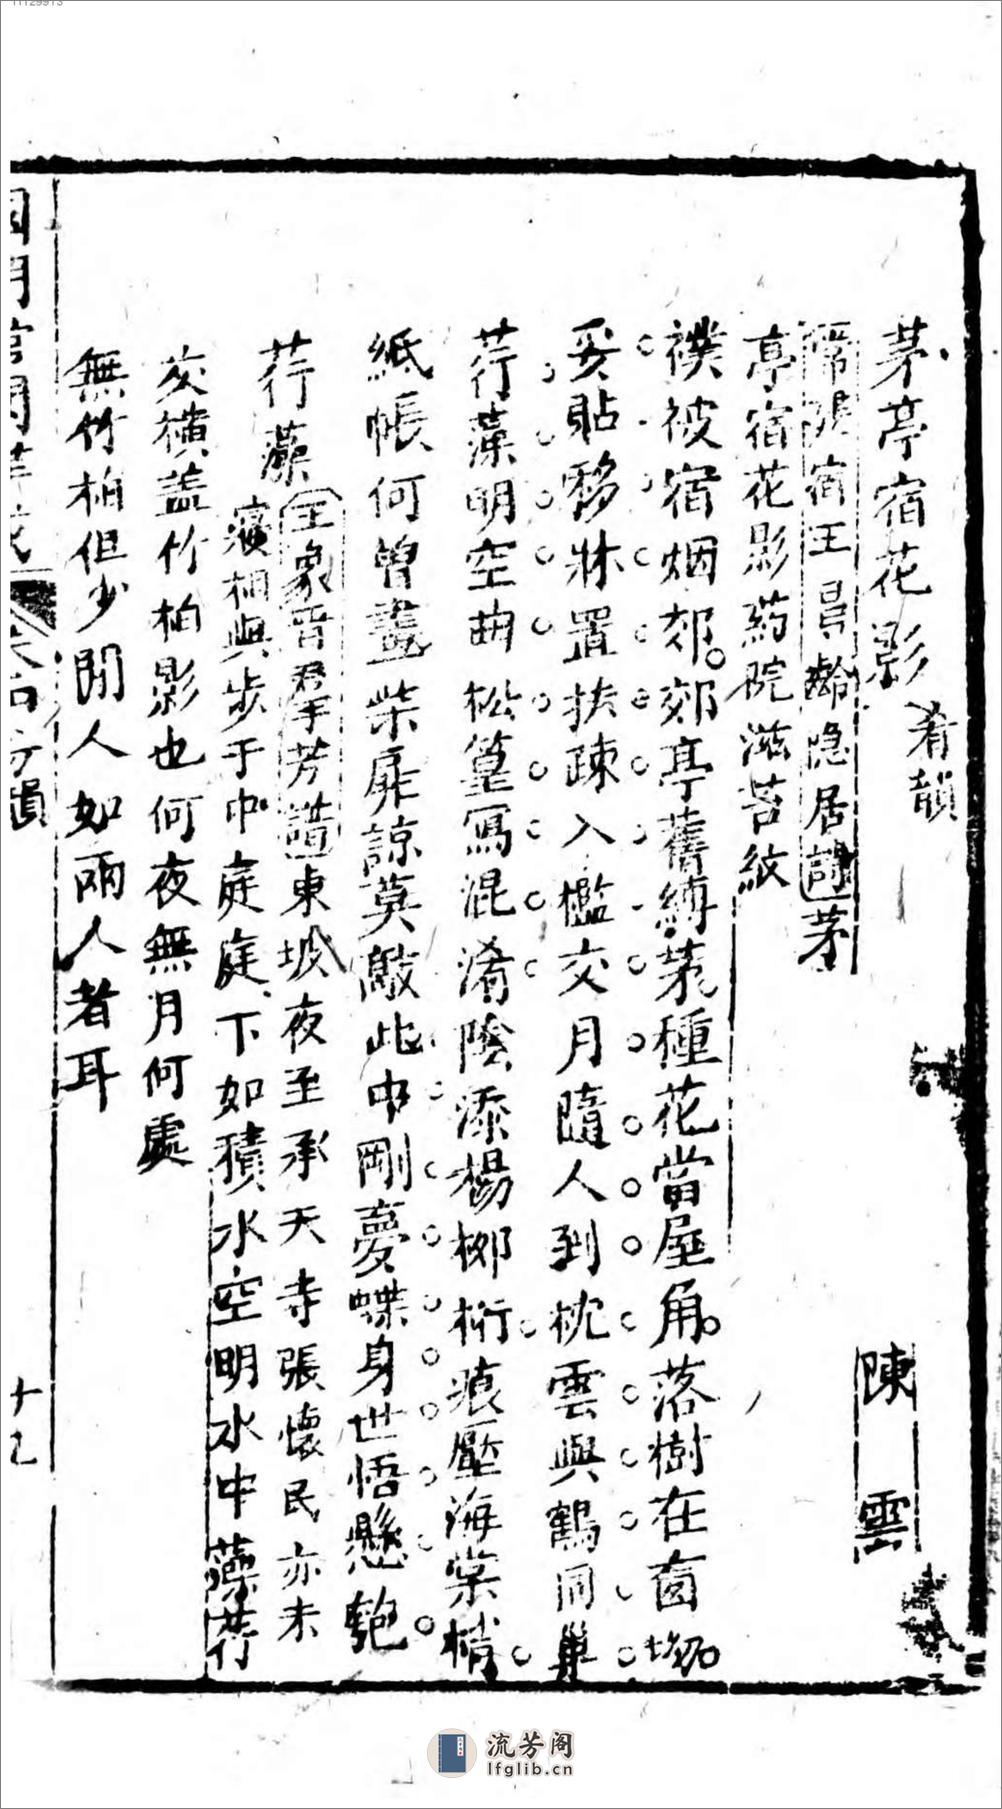 茅亭宿花影 肴韻
陳雲
常建宿王昌齡隐居詩茅
亭宿花影葯院滋苔紋
襆被宿烟郊郊亭舊縛茅種花當屋角落樹在窗坳
妥貼移牀置扶疎入檻交月隨人到枕雲與鶴同巢
荇藻明空曲松篁寫混淆陰添楊柳桁痕壓海棠梢
紙帳何曾畫柴扉諒莫敲此中剛夢蝶身世悟懸匏
荇藻 王象晋羣芳譜東坡夜至承天寺張懷民亦未
寢相與步于中庭庭下如積水空明水中藻荇
交横盖竹柏影也何夜無月何處
無竹柏但少閒人如兩人者耳
十九
流芳阁
lfglib.cn